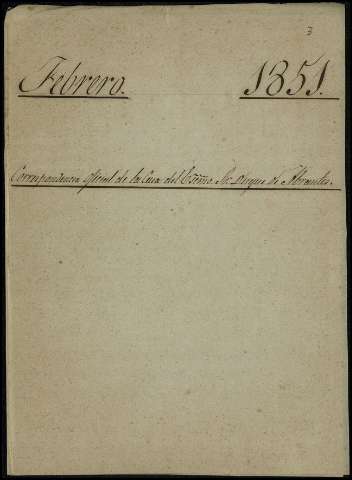 3
Febrero. 1851.
Correspondencia oficial de la Casa del Exmo. Sr. Duque de Abrantes.